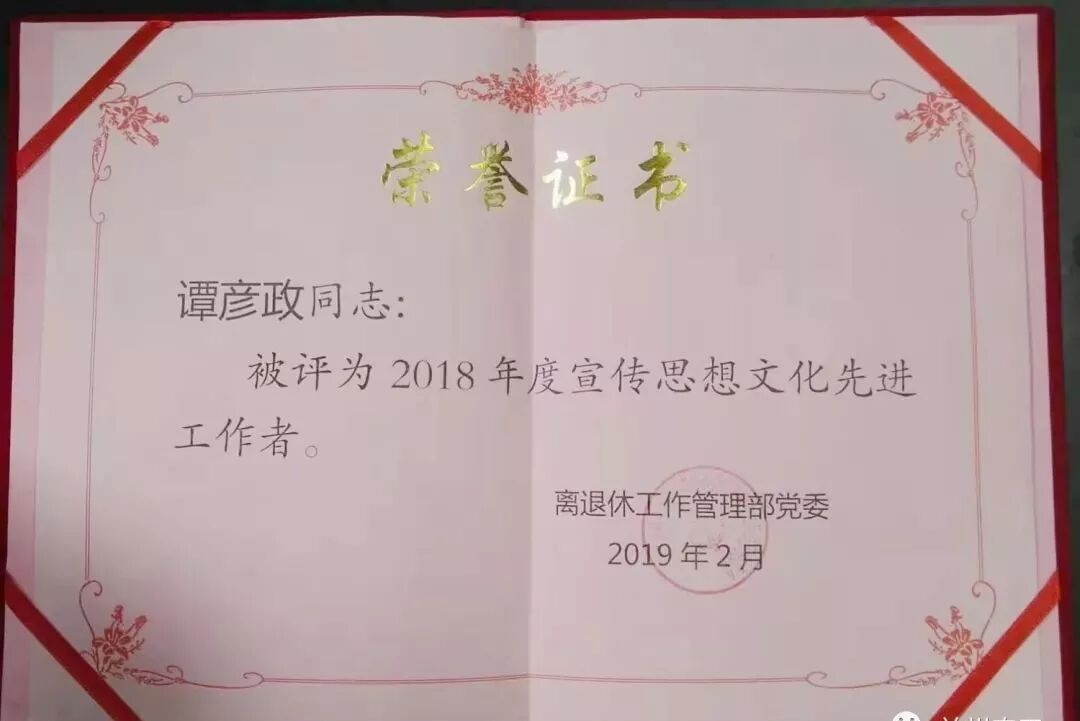 荣誉证书
谭彦政同志：
被评为2018年度宣传思想文化先进
工作者。
离退休工作管理部党委
2019年2月